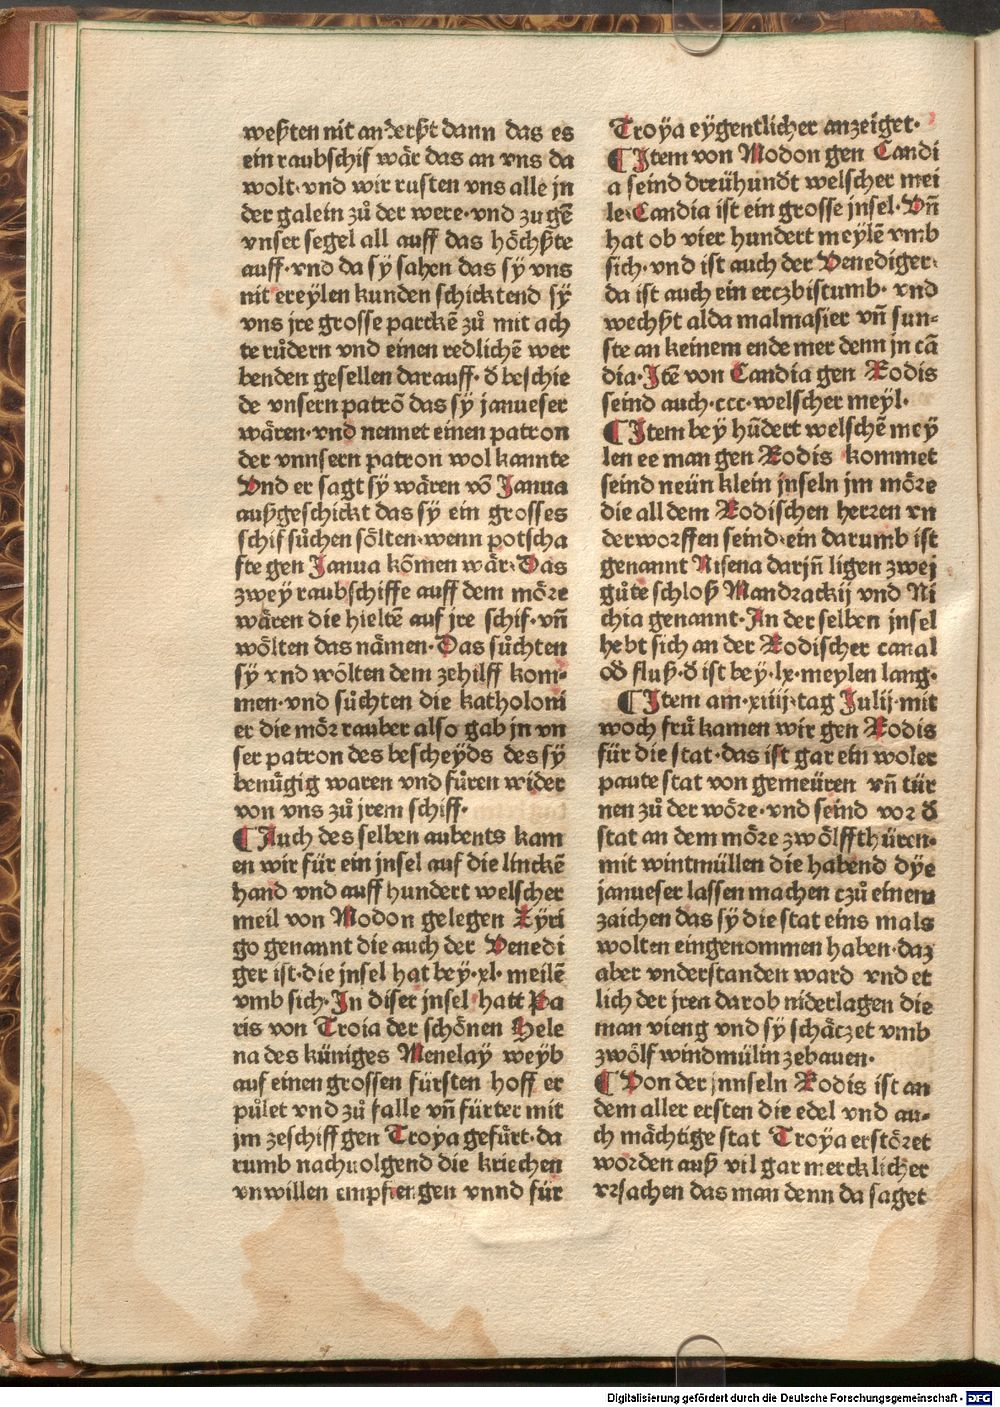 weßten nit anderßt dann das es
ein raubschif wår das an vns da
wolt·vnd wir rusten vns alle jn
der galein zů der were·vnd zugē
vnser segel all auff das hôchßte
auff·vnd da sÿ sahen das sÿ vns
nit ereylen kunden schicktend sÿ
vns jre grosse parckē zů mit ach
te růdern vnd einen redlichē wer
benden gesellen darauff·d̄ beschie
de vnsern patrō das sÿ janueser
wåren·vnd nennet einen patron
der vnnsern patron wol kannte
Vnd er sagt sÿ wåren vō Janua
außgeschickt das sÿ ein grosses
schif sůchen sôlten·wenn potscha
fte gen Janua kōmen wår·Das
zweÿ raubschiffe auff dem môre
wåren die hieltē auf jre schif·vn̄
wôlten das nåmen·Das sůchten
sÿ vnd wôlten dem zehilff kom⸗
men·vnd sůchten die katholoni
er die môr rauber also gab jn vn
ser patron des bescheyds des sÿ
benůgig waren vnd fůren wider
von vns zů jrem schiff·
¶Auch des selben aubents kam
en wir für ein jnsel auf die linckē
hand vnd auff hundert welscher
meil von Modon gelegen Zÿri
go genannt die auch der Venedi
ger ist·die jnsel hat beÿ·xl·meilē
vmb sich·In diser jnsel hatt Pa
ris von Troia der schônen Hele
na des küniges Menelaÿ weyb
auf einen grossen fürsten hoff er
půlet vnd zů falle vn̄ fürter mit
jm zeschiff gen Troÿa gefůrt·da
rumb nachuolgend die kriechen
vnwillen empfiengen vnnd für
Troÿa eÿgentlicher anzeiget·
¶Item von Modon gen Candi
a seind dreühund̄t welscher mei
le·Candia ist ein grosse jnsel·Vn̄
hat ob vier hundert meylē vmb
sich·vnd ist auch der Venediger·
da ist auch ein erczbistumb·vnd
wechßt alda malmasier vn̄ sun⸗
ste an keinem ende mer denn jn cā
dia·Itē von Candia gen Rodis
seind auch·ccc·welscher meyl·
¶Item beÿ hūdert welschē meÿ
len ee man gen Rodis kommet
seind neün klein jnseln jm môre
die all dem Rodischen herren vn
derworffen seind·ein darumb ist
genannt Nisena darjn̄ ligen zwej
gůte schloß Mandrackij vnd Ni
chia genannt·In der selben jnsel
hebt sich an der Rodischer canal
od̄ fluß·d̄ ist beÿ·lx·meylen lang·
¶Item am·xiiij·tag Julij·mit
woch frů kamen wir gen Rodis
für die stat·das ist gar ein woler
paute stat von gemeüren vn̄ tür
nen zů der wôre·vnd seind vor d̄
stat an dem môre zwôlff thüren·
mit wintmüllen die habend dÿe
janueser lassen machen czů einem
zaichen das sÿ die stat eins mals
wolten eingenommen haben·daz
aber vnderstanden ward vnd et
lich der jren darob niderlagen die
man vieng vnd sÿ schåczet vmb
zwôlf windmülin zebauen·
¶Von der jnnseln Rodis ist an
dem aller ersten die edel vnd au⸗
ch måchtige stat Troÿa erstôret
worden auß vil gar mercklicher
vrsachen das man denn da saget
Digitalisierung gefördert durch die Deutsche Forschungsgemeinschaft - DFG